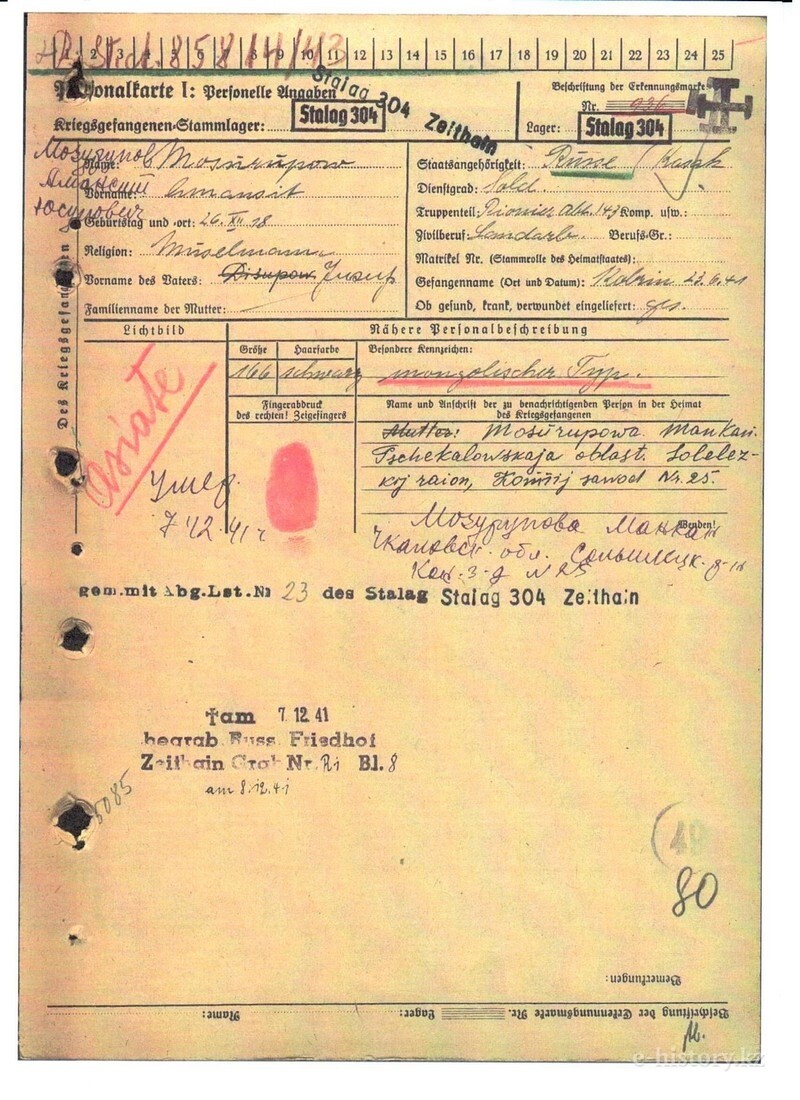 1 2 3 4 5 6 7 8 9 10 11 12 13 14 15 16 17 18 19 20 21 22 23 24 25
Personalkarte I: Personelle Angaben
Stalag 304 Zeithain
Kriegsgefangenen-Stammlager: Stalag 304
Beschriftung der Erkennungsmarke
Nr. 936
Lager: Stalag 304
Des Kriegsgefangenen
Мозурупов
Амансит
Юсупович
Name: Mosurupow
Vorname: Amansit
Geburtstag und -ort: 26. XII 18
Religion: Muselmann
Vorname des Vaters: Disupow Jusuf
Familienname der Mutter:
Staatsangehörigkeit: Russe / Kasak
Dienstgrad: Sold.
Truppenteil: Pionier Abt. 143 Komp. usw.:
Zivilberuf: Landarb. Berufs-Gr.:
Matrikel Nr. (Stammrolle des Heimatstaates):
Gefangenname (Ort und Datum): Kobrin 23.6.41
Ob gesund, krank, verwundet eingeliefert: ges.
Lichtbild
Nähere Personalbeschreibung
Größe Haarfarbe Besondere Kennzeichen:
166 schwarz mongolischer Typ.
Fingerabdruck
des rechten! Zeigefingers
Name und Anschrift der zu benachrichtigenden Person in der Heimat
des Kriegsgefangenen
Mutter: Mosurupowa Mankan.
Tschekalowskaja oblast. Solelez-
koj raion, Konnij sawod Nr. 25.
Asiate
Умер
7.12.41 г
Wenden!
Мозурупова Манкан
Чкаловск. обл. р-н
Кон. з-д N 25
gem. mit Abg. Lst. Nr 23 des Stalag Stalag 304 Zeithain
✝am 7. 12. 41
begrab. Russ. Friedhof
Zeithain Grab Nr. Bl. 8
am 8.12.41
5085
49
80
Bemerkungen:
Beschriftung der Erkennungsmarke Nr. Lager: Name:
e-history.kz